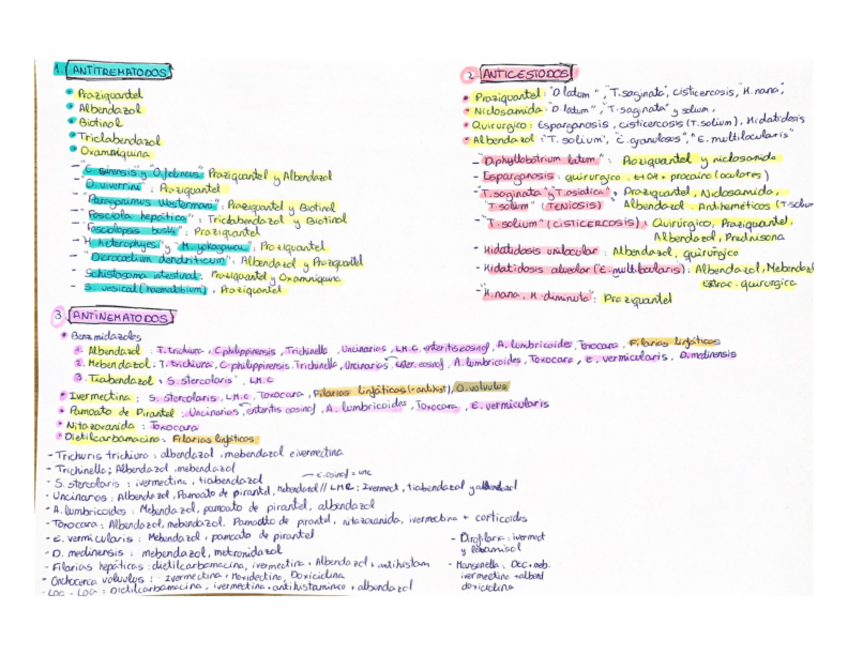 1. ANTITREMATODOS
• Praziquantel
• Albendazol
• Biotinol
• Triclabendazol
• Oxamniquina
- "C. sinensis" y "O. felineus": Praziquantel y Albendazol
- "O. viverrine": Praziquantel
- "Paragonimus Westermani": Praziquantel y Biotinol
- "Fasciola hepática": Triclabendazol y Biotinol
- "Fasciolopsis buski": Praziquantel
- "H. heterophyes" y M. yokogawai: Praziquantel
- "Dicrocoelium dendriticum": Albendazol y Praziquantel
- Schistosoma intestinal: Praziquantel y Oxamniquina
- S. vesical (haematobium): Praziquantel
2. ANTICESTODOS
• Praziquantel: "D. latum", "T. saginata", cisticercosis, "H. nana",
• Niclosamida: "D. latum", "T. saginata" y solium,
• Quirurgico: Esparganosis, cisticercosis (T. solium), Hidatidosis
• Albendazol: "T. solium", "E. granulosus", "E. multilocularis"
- "Diphyllobotrium latum": Praziquantel y niclosamida
- Esparganosis: quirurgico. EtOH + procaina (oculares)
- "T. saginata" y T. asiatica", Praziquantel, Niclosamida,
"T. solium" (TENIOSIS) Albendazol. Antiheméticos (T. solium
- "T. solium" (CISTICERCOSIS): Quirúrgico, Praziquantel,
Albendazol, Prednisona
- Hidatidosis unilocular: Albendazol, quirúrgico
- Hidatidosis alveolar (E. multilocularis): Albendazol, Mebendazol
extrac. quirurgica
- "H. nana, H. diminuta": Praziquantel
3. ANTINEMATODOS
• Benzimidazoles
1. Albendazol: T. trichiura, C. philippinensis, Trichinella, Uncinarias, L.M.C, enteritis eosinof, A. lumbricoides, Toxocara, Filarias linfáticas
2. Mebendazol: T. trichiura, C. philippinensis. Trichinella, Uncinarias, Enter. eosinof, A. lumbricoides, Toxocara, E. vermicularis, D. medinensis
3. Tiabendazol: S. stercolaris", L.M.C
• Ivermectina: S. stercolaris, L.M.C, Toxocara, Filarias linfáticas (+antihist), O. volvulus
• Pamoato de Pirantel: Uncinarias, enteritis eosinof, A. lumbricoides, Toxocara, E. vermicularis
• Nitazoxanida: Toxocara
• Dietilcarbamacina: Filarias linfáticas
- Trichuris trichiura: albendazol, mebendazol e ivermectina
- Trichinella: Albendazol, mebendazol
- S. stercolaris: ivermectina, tiabendazol
- E. eosinof = unc
- Uncinarias: Albendazol, Pamoato de pirantel, mebendazol // LMC: Ivermect, tiabendazol y albendazol
- A. lumbricoides: Mebendazol, pamoato de pirantel, albendazol
- Toxocara: Albendazol, mebendazol, Pamoato de pirantel, nitazoxanida, ivermectina + corticoides
- E. vermicularis: Mebendazol, pamoato de pirantel
- D. medinensis: mebendazol, metronidazol
- Filarias hepáticas: dietilcarbamacina, ivermectina + Albendazol + antihistam
- Onchocerca volvulus: Ivermectina + Moxidectina, Doxiciclina
- LOA-LOA: Dietilcarbamacina, ivermectina + antihistaminico + albendazol
- Dirofilaria: ivermect
y levamisol
- Mansonella: DEC + meb.
ivermectina + albend
doxiciclina